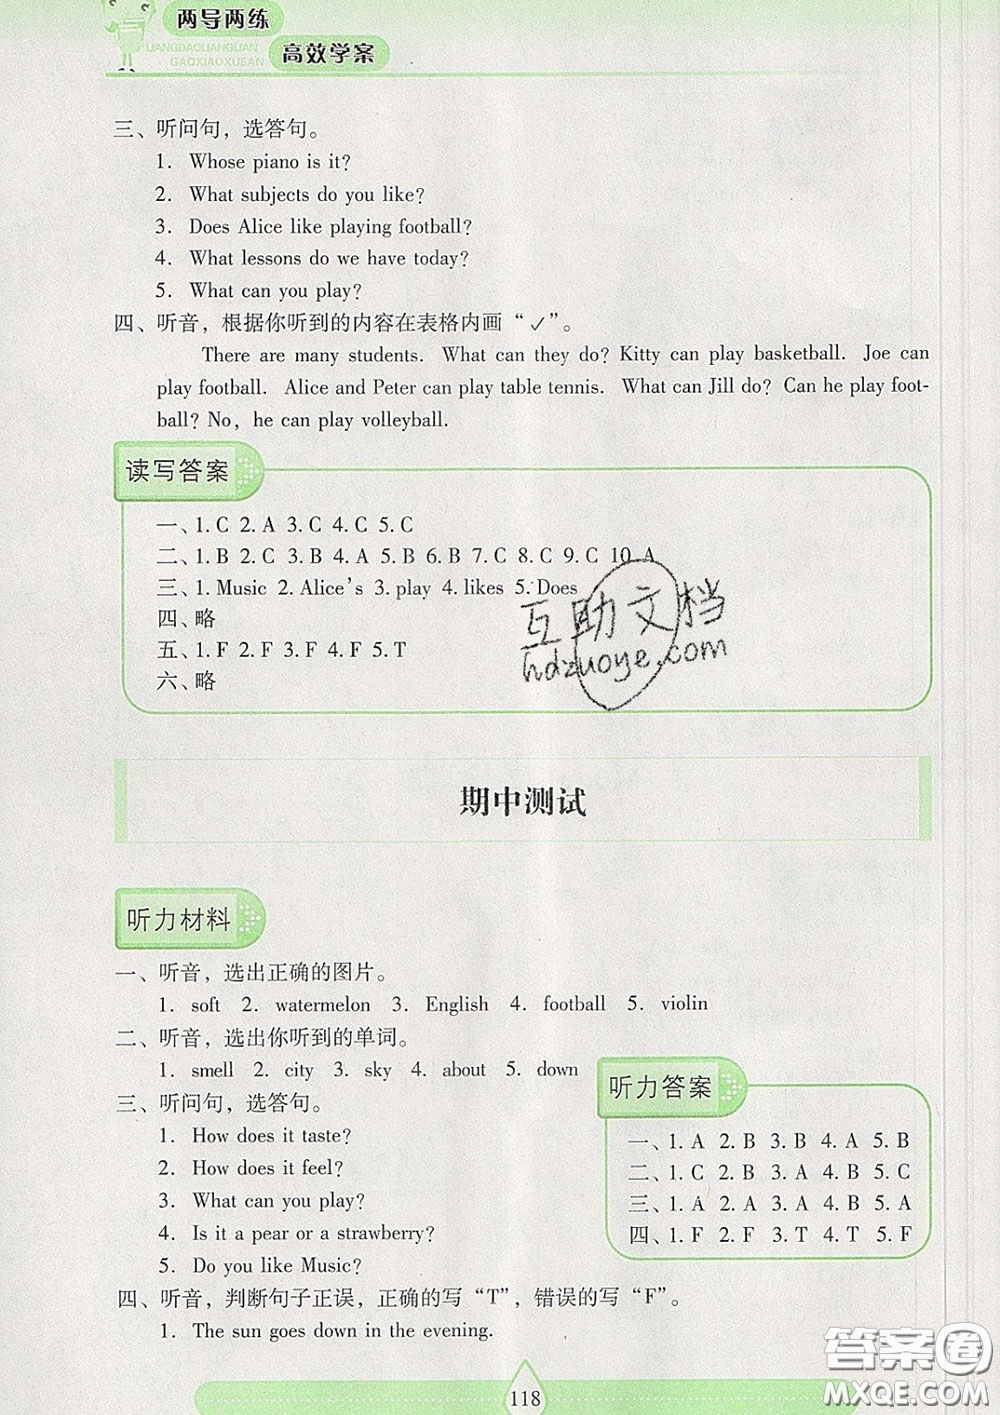 两导两练
LIANGDAOLIANGLIAN
高效学案
GAOXIAOXUEAN
三、听问句，选答句。
1. Whose piano is it?
2. What subjects do you like?
3. Does Alice like playing football?
4. What lessons do we have today?
5. What can you play?
四、听音，根据你听到的内容在表格内画“✓”。
There are many students. What can they do? Kitty can play basketball. Joe can
play football. Alice and Peter can play table tennis. What can Jill do? Can he play foot-
ball? No, he can play volleyball.
读写答案
一、1. C 2. A 3. C 4. C 5. C
二、1. B 2. C 3. B 4. A 5. B 6. B 7. C 8. C 9. C 10. A
三、1. Music 2. Alice's 3. play 4. likes 5. Does
四、略
五、1. F 2. F 3. F 4. F 5. T
六、略
互助文档
hdzuoye.com
期中测试
听力材料
一、听音，选出正确的图片。
1. soft 2. watermelon 3. English 4. football 5. violin
二、听音，选出你听到的单词。
1. smell 2. city 3. sky 4. about 5. down
三、听问句，选答句。
1. How does it taste?
2. How does it feel?
3. What can you play?
4. Is it a pear or a strawberry?
5. Do you like Music?
听力答案
一、1. A 2. B 3. B 4. A 5. B
二、1. C 2. B 3. A 4. B 5. C
三、1. A 2. A 3. A 4. B 5. A
四、1. F 2. F 3. T 4. T 5. F
四、听音，判断句子正误，正确的写“T”，错误的写“F”。
1. The sun goes down in the evening.
118
答案圈
MXQE.COM